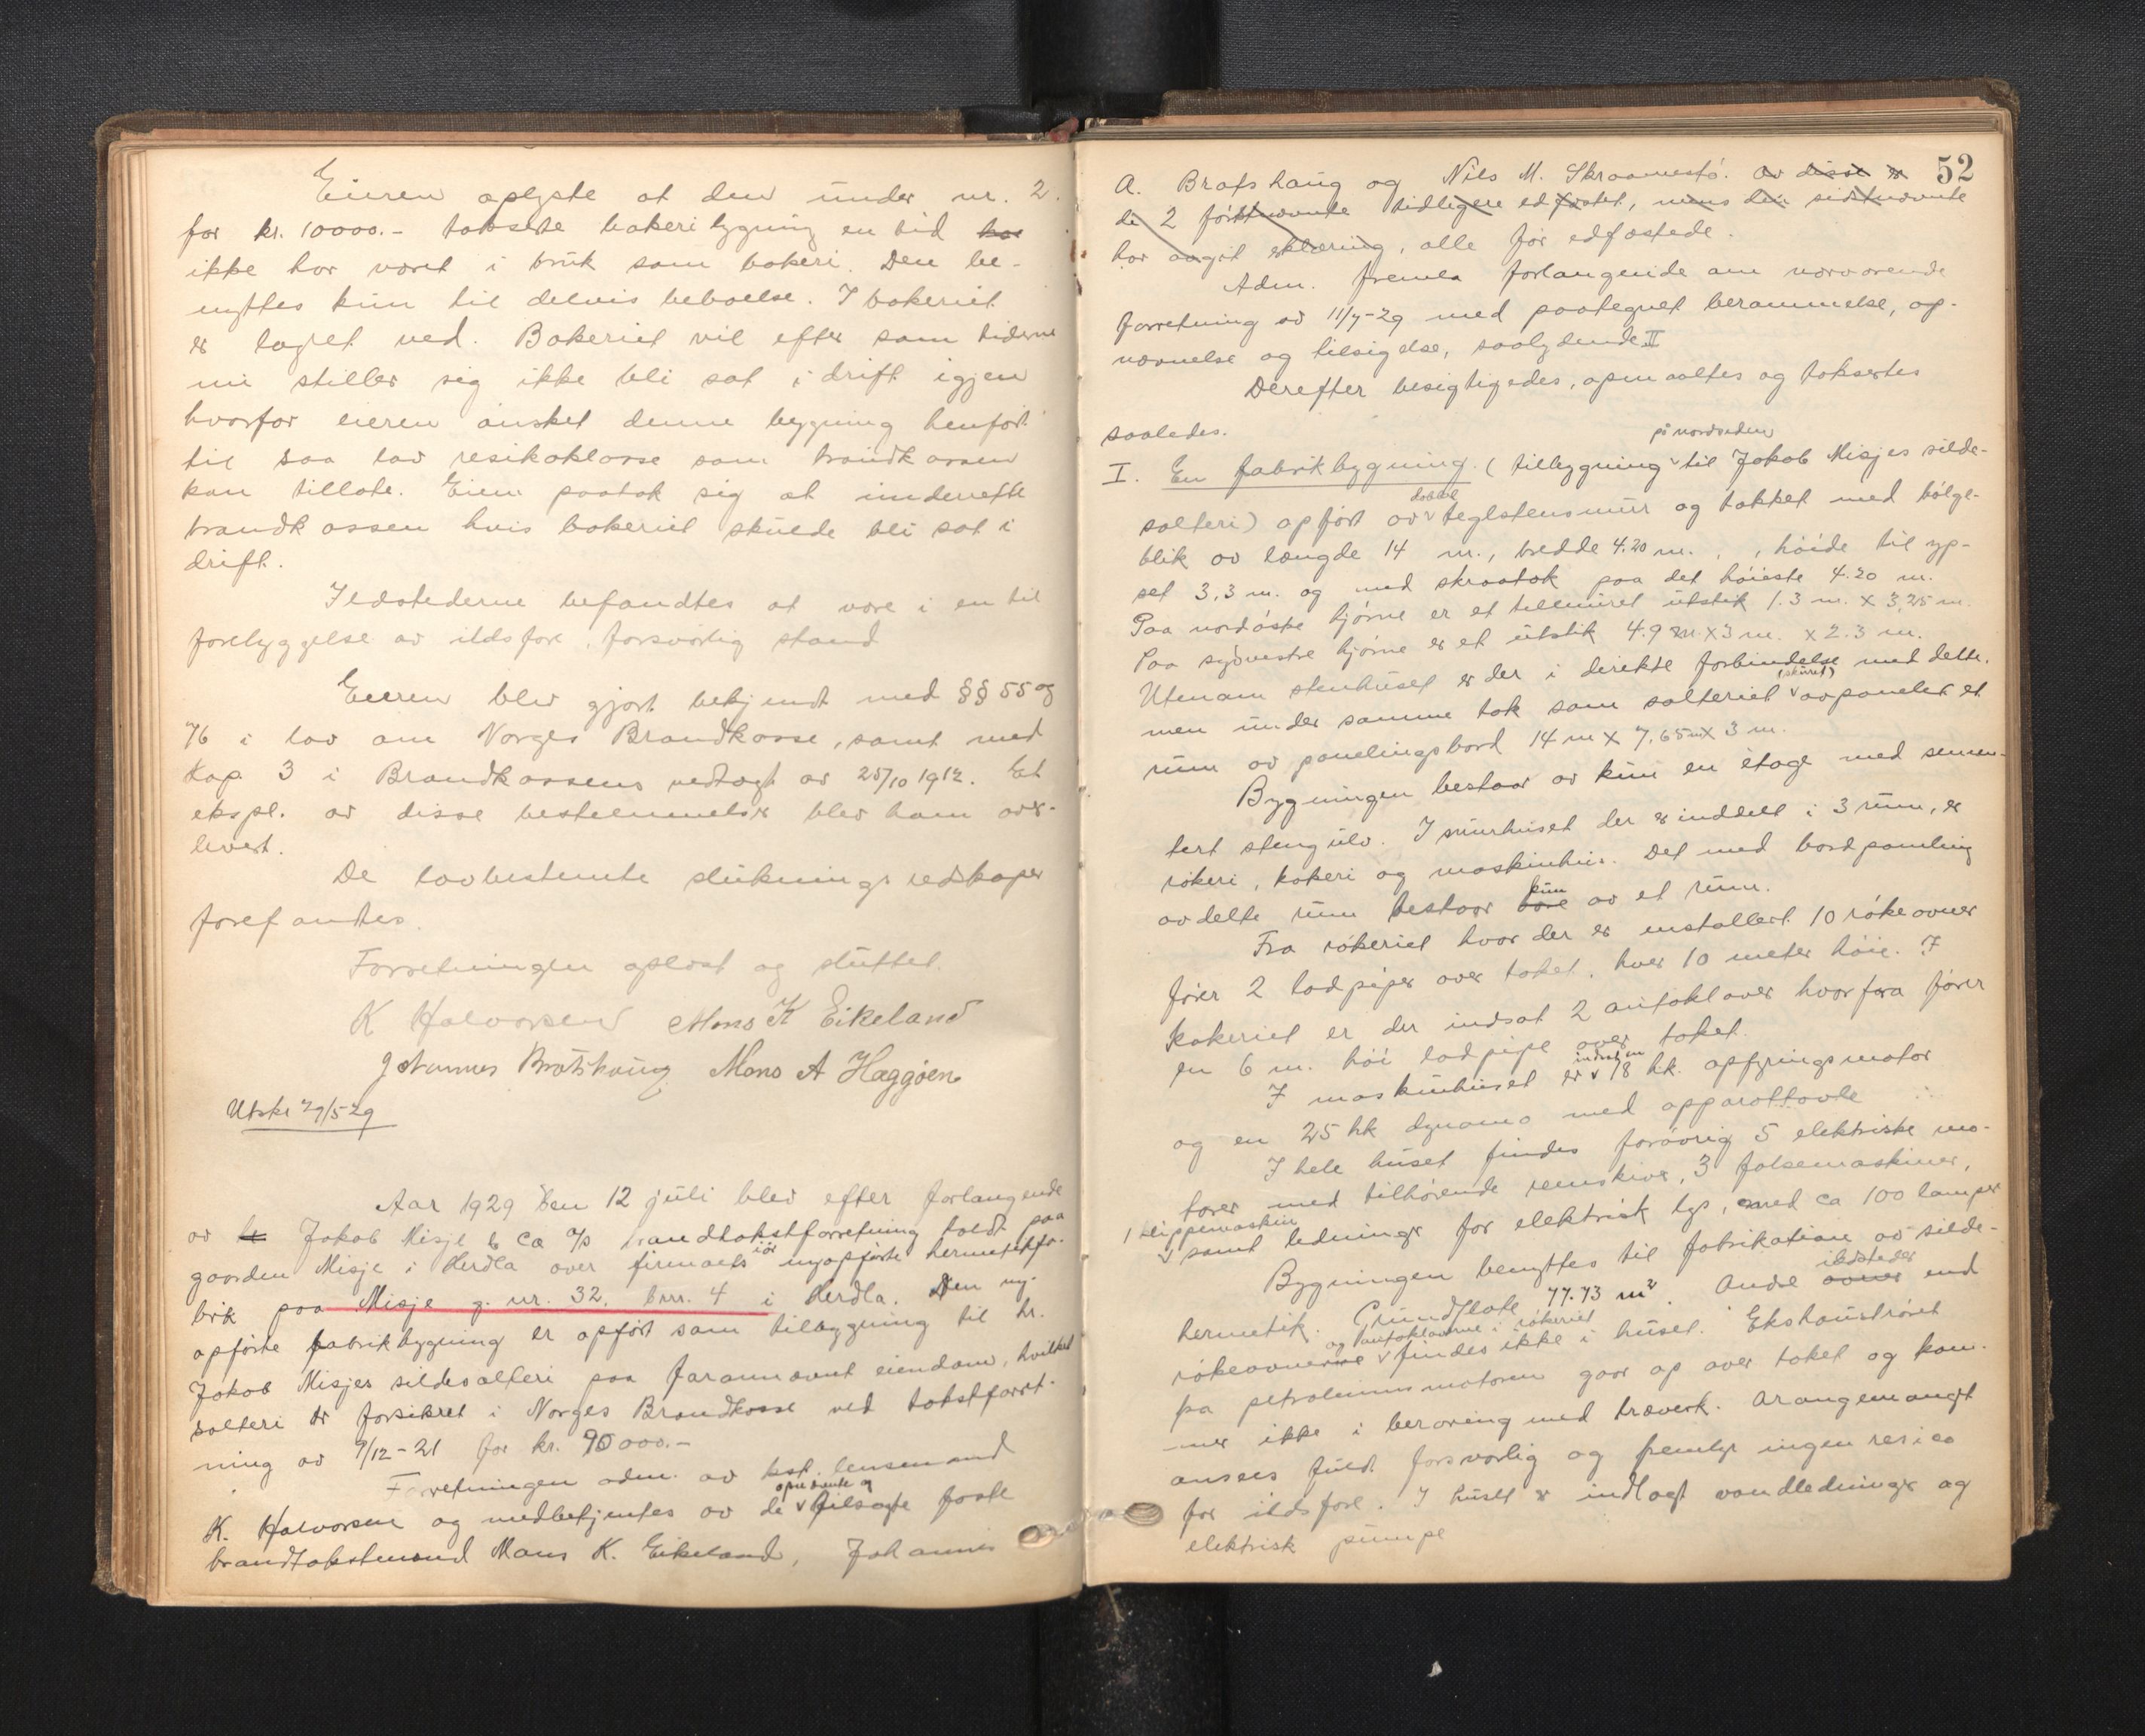 Eieren oplyste at den under nr. 2.
for kr. 10000.- takserte bakeribygning en tid har
ikke har været i bruk som bakeri. Den be-
nyttes kun til delvis beboelse. I bakeriet
er lagret ved. Bakeriet vil efter som tiderne
nu stiller sig ikke bli sat i drift igjen
hvorfor eieren ønsket denne bygning henført
til saa lav resikoklasse som brandkassen
kan tillate. Eieren paatok sig at underrette
brandkassen hvis bakeriet skulde bli sat i
drift.
Ildstederne befandtes at være i en til
forebyggelse av ildsfare forsvarlig stand
Eieren blev gjort bekjendt med §§ 55 og
76 i lov om Norges Brandkasse, samt med
Kap. 3 i Brandkassens vedtægt av 25/10 1912. Et
ekspl. av disse bestemmelser blev ham over-
levert.
De lovbestemte sluknings redskaper
forefandtes.
Forretningen oplæst og sluttet.
K Halvorsen Mons K Eikeland
Johannes Brotshaug Mons A Hæggøen
Utskr 29/5 29
Aar 1929 den 12 juli blev efter forlangende
av Jakob Misje & Co A/S brandtakstforretning holdt paa
gaarden Misje i Herdla over firmaets iør nyopførte hermetikfa-
brik paa Misje g. nr. 32. bnr. 4 i Herdla. Den ny-
opførte fabrikbygning er opført som tilbygning til hr.
Jakob Misjes sildesalteri paa forannævnt eiendom, hvilket
salteri er forsikret i Norges Brandkasse ved takstforret-
ning av 9/12-21 for kr. 90000.-
Forretningen adm. av kst. lensmand
K. Halvorsen og medbetjentes av de v opnævnte og tilsagte faste
brandtakstmænd Mons K. Eikeland, Johannes
52
A. Brotshaug og Nils M. Skraamestø. Av disse er
de 2 førstnævnte tidligere edfæstet, mens den sidstnævnte
har avgit erklæring, alle før edfæstede.
Adm. fremla forlangende om nærværende
forretning av 11/7-29 med paategnet berammelse, op-
nævnelse og tilsigelse, saalydende II
Derefter besigtigedes, opmaaltes og takseredes
saaledes.
på nordsiden
I. En fabrikbygning. (tilbygning v til Jakob Misjes silde-
salteri) opført av v dobbel teglstensmur og takket med bølge-
blik av længde 14 m., bredde 4.20 m., høide til gp-
set 3,3 m. og med skraatak paa det høieste 4.20 m.
Paa nordøstre hjørne er et tilmuret utstik 1.3 m. x 3,25 m.
Paa sydvestre hjørne er et utstik 4.9 m. x 3 m. x 2.3 m.
Utenom stenhuset er der i direkte forbindelse med dette.
men under samme tak som salteriet v (skuret) avpanelet et
rum av panelingsbord 14 m x 7,65 m x 3 m.
Bygningen bestaar av kun en etage med semen-
tert stengulv. I murhuset der er inddelt i 3 rum, er
røkeri, kokeri og maskinhus. Det med bordpanling
avdelte rum bestaar bare kun av et rum.
Fra røkeriet hvor der er installert 10 røkeovner
fører 2 lodpiper over taket. hver 10 meter høie. I
kokeriet er der indsat 2 autoklaver hvorfra fører
en 6 m. høi lodpipe over taket.
I maskinhuset er v 18 hk. opfyringsmotor
og en 25 hk dynamo med apparattavle
I hele huset findes forøvrig 5 elektriske mo-
torer med tilhørende remskiver, 3 falsemaskiner,
1 klippemaskin
v samt ledninger for elektrisk lys, med ca 100 lamper
Bygningen benyttes til fabrikation av silde-
hermetik. Grundflate 77.73 m². Andre ovner ildsteder end
røkeovnerne v og autoklaverne i røkeriet findes ikke i huset. Ekshaustrøret
fra petroleumsmotoren gaar op over taket og kom-
mer ikke i berøring med træverk. Arangemanget
ansees fuldt forsvarlig og frembyr ingen resico
for ildsfare. I huset er indlagt vandledninger og
elektrisk pumpe